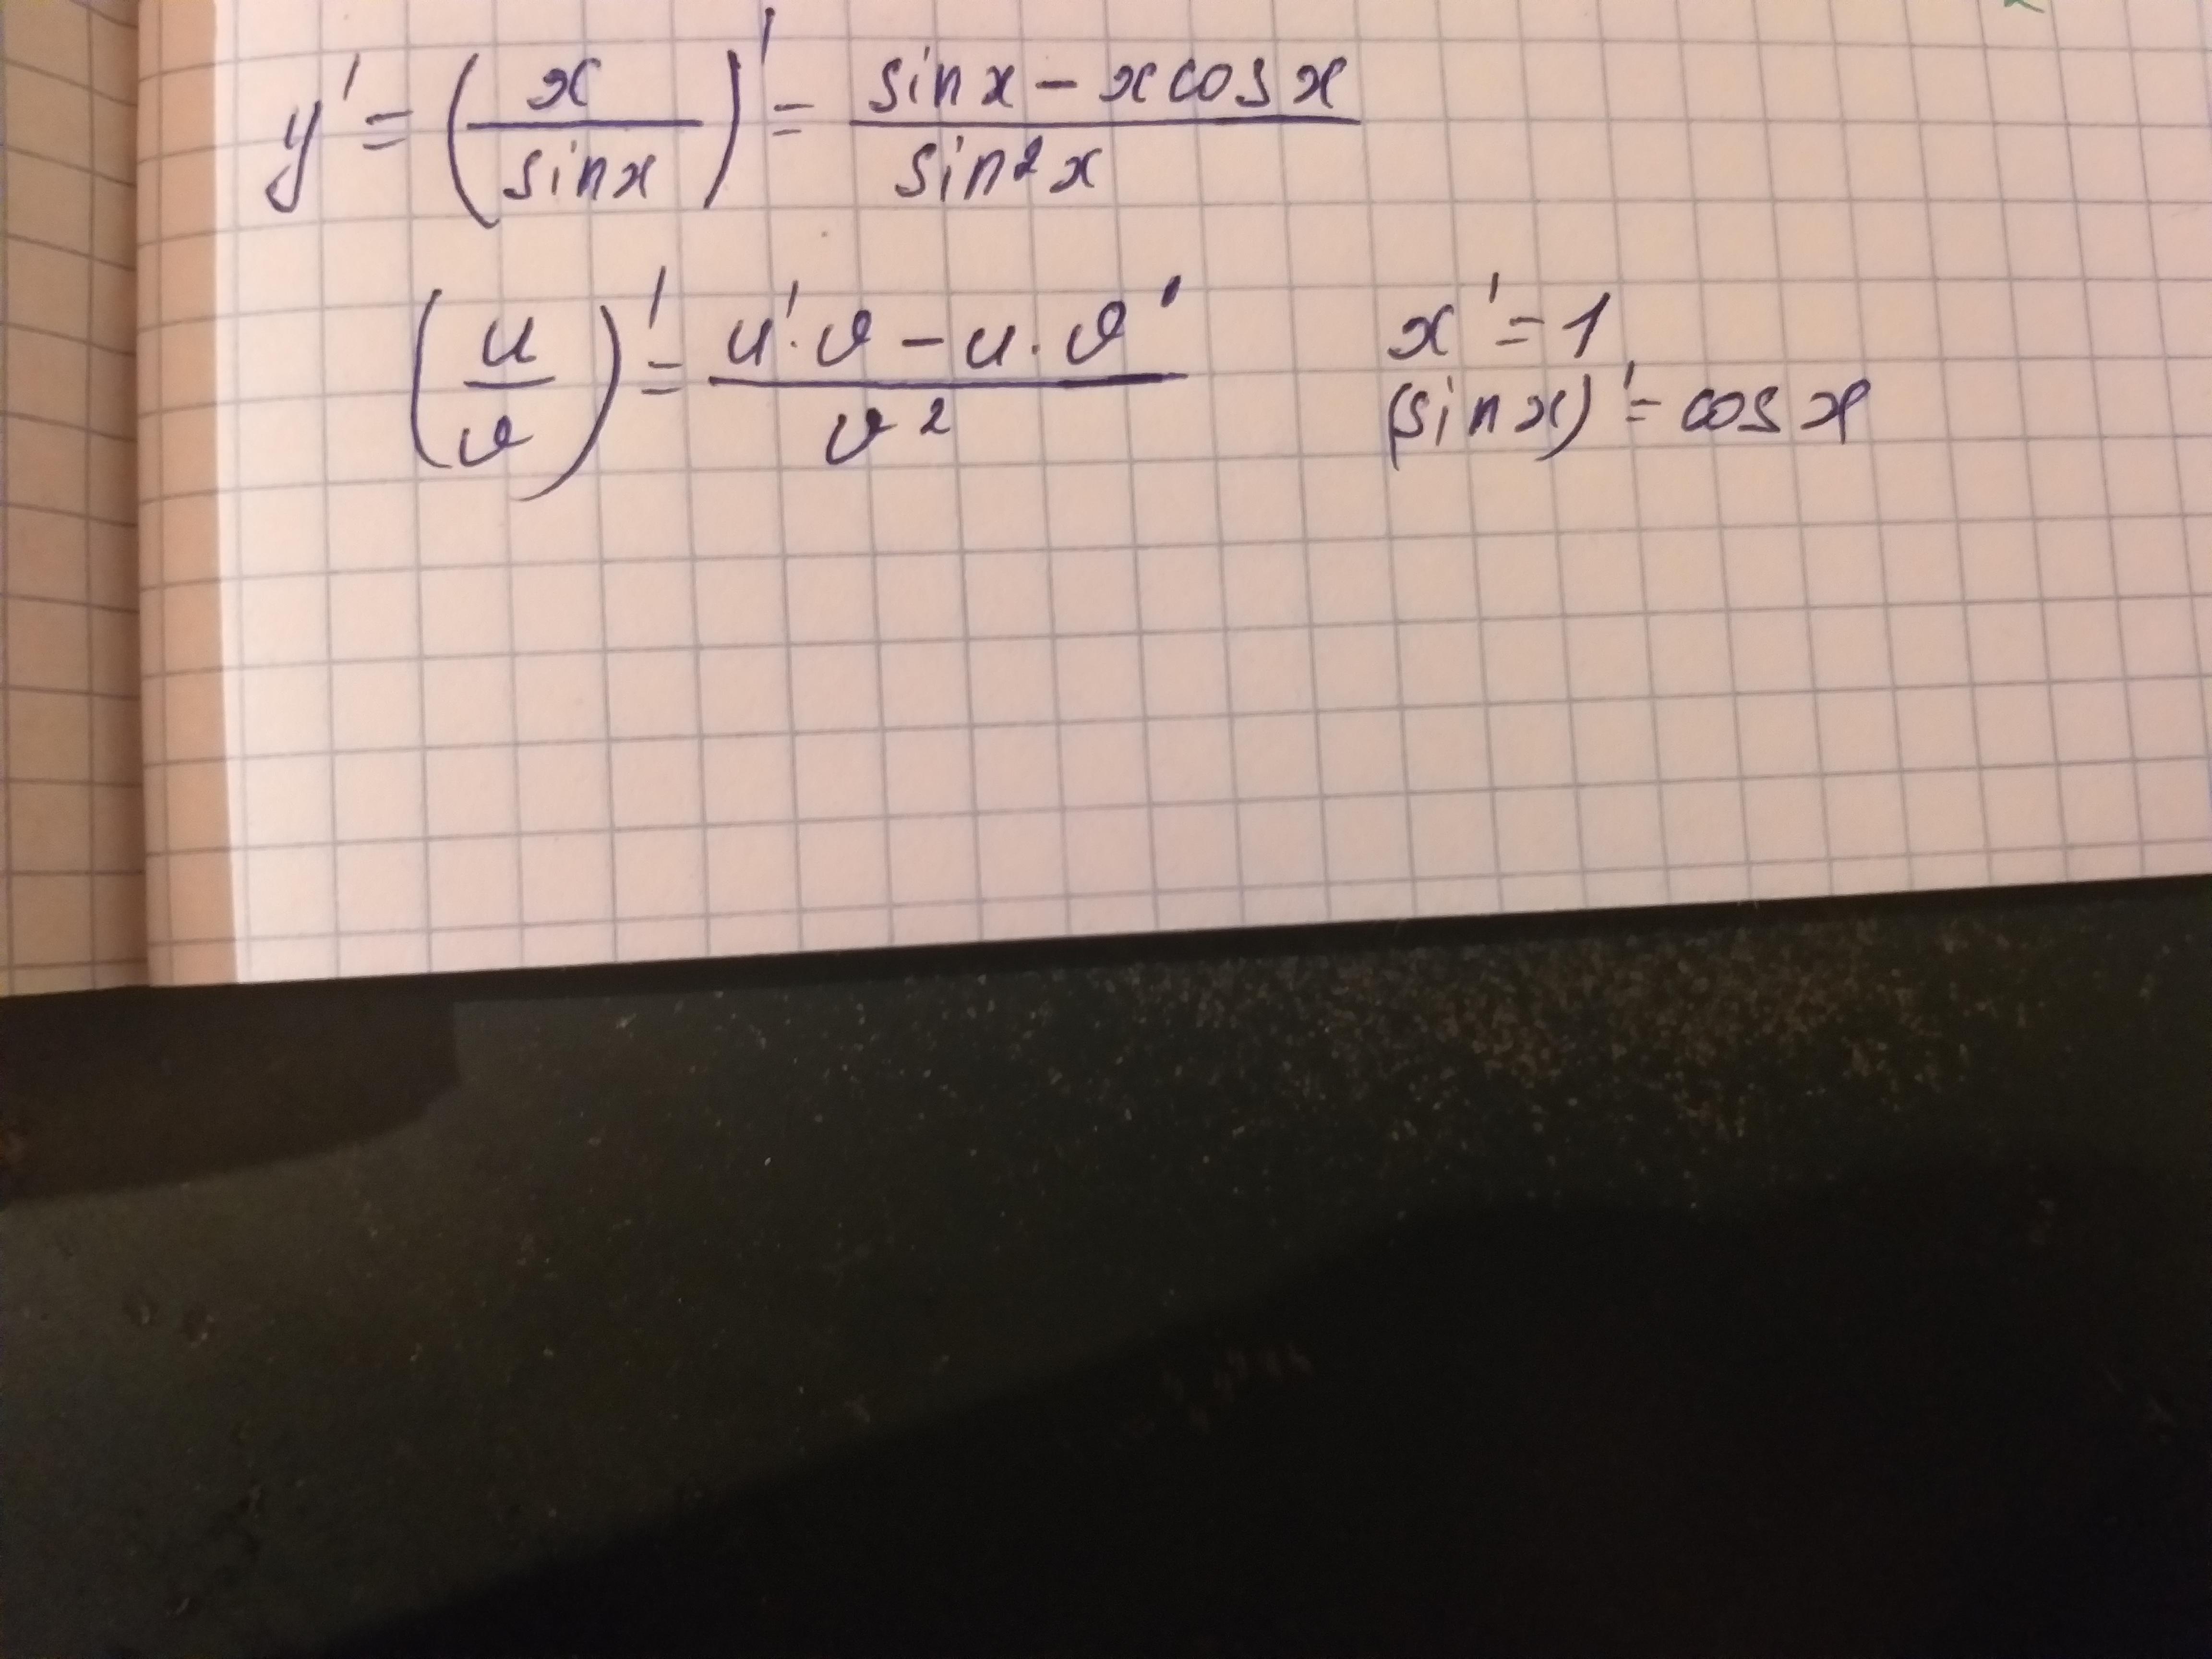 y' = (x / sin x)' = (sin x − x cos x) / sin² x
(u / v)' = (u' · v − u · v') / v²
x' = 1
(sin x)' = cos x